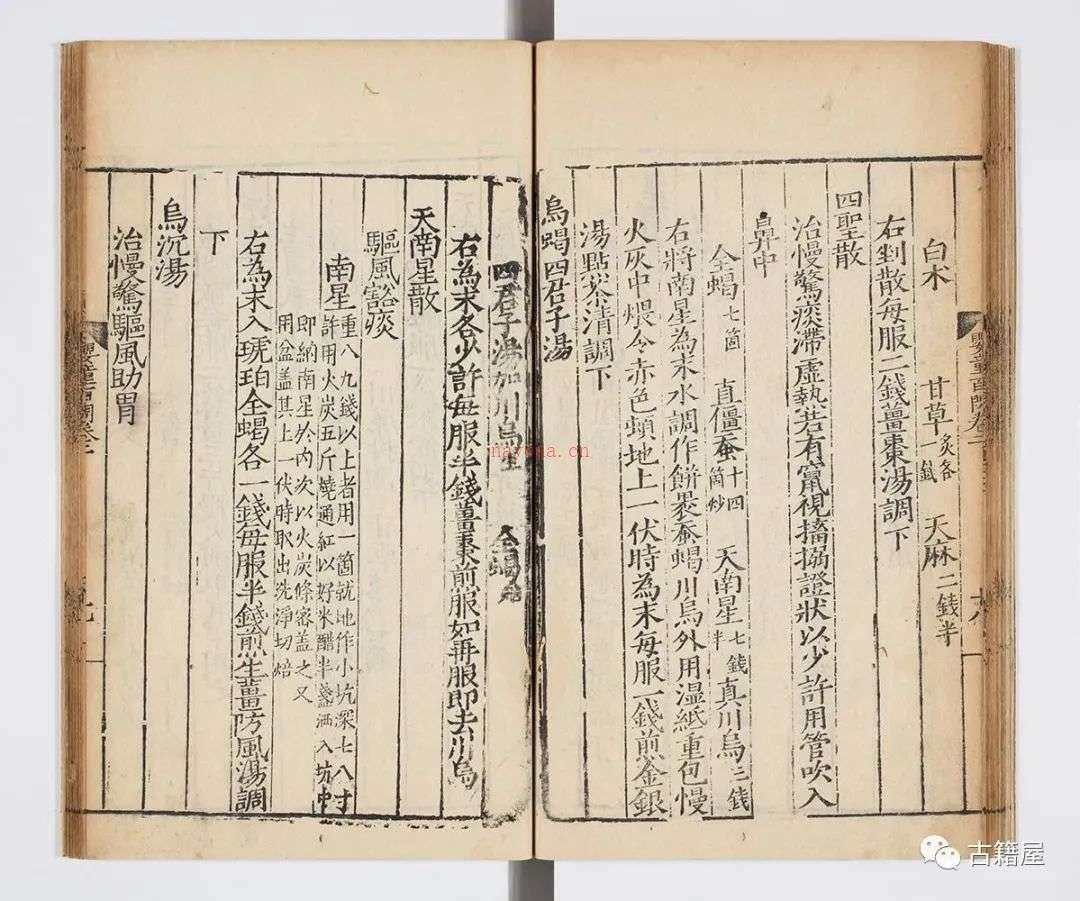 白朮 甘草炙各一錢 天麻二錢半
右剉散每服二錢薑棗湯調下
四聖散
治慢驚痰滯虛執若有竄視搐搦證狀以少許用管吹入
鼻中
全蝎七箇 直僵蚕十四箇炒 天南星七錢半 真川烏三錢
右將南星為末水調作餅裹蚕蝎川烏外用濕紙重包慢
火灰中煨令赤色頓地上一伏時為末每服一錢煎金銀
湯點茶清調下
烏蝎四君子湯
四君子湯加川烏生 全蝎
右為末各少許每服半錢薑棗煎服如再服即去川烏
天南星散
驅風豁痰
南星重八九錢以上者用一箇就地作小坑深七八寸
許用火炭五斤燒通紅以好米醋半盞洒入坑中
即納南星於內次以火炭條密盖之又
用盆盖其上一伏時取出洗淨切焙
右為末入琥珀全蝎各一錢每服半錢煎生薑防風湯調
下
烏沉湯
治慢驚驅風助胃
古籍屋